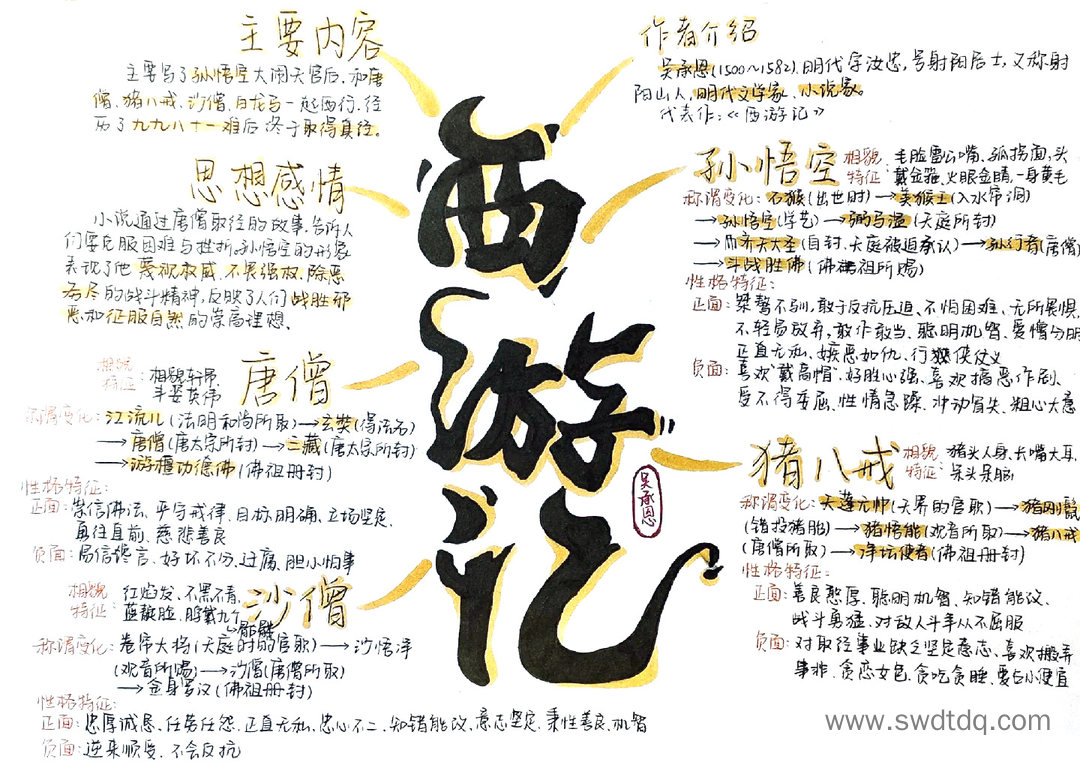 主要内容
主要写了孙悟空大闹天宫后,和唐
僧、猪八戒、沙僧、白龙马一起西行,经
历了九九八十一难后终于取得真经。
思想感情
小说通过唐僧取经的故事,告诉人
们要克服困难与挫折,孙悟空的形象
表现了他蔑视权威、不畏强权、除恶
务尽的战斗精神,反映了人们战胜邪
恶和征服自然的崇高理想。
唐僧
相貌
特征:
相貌轩昂、
丰姿英伟
称谓变化:江流儿(法明和尚所取)→玄奘(得法名)
→唐僧(唐太宗所封)→三藏(唐太宗所封)
→旃檀功德佛(佛祖册封)
性格特征:
正面:崇信佛法、严守戒律、目标明确、立场坚定、
勇往直前、慈悲善良
负面:易信谗言、好坏不分、迂腐、胆小怕事
沙僧
相貌
特征:
红焰发、不黑不青、
蓝靛脸、脖戴九个
骷髅
称谓变化:卷帘大将(天庭时的官职)→沙悟净
(观音所赐)→沙僧(唐僧所取)
→金身罗汉(佛祖册封)
性格特征:
正面:忠厚诚恳、任劳任怨、正直无私、忠心不二、知错能改、意志坚定、秉性善良、机智
负面:逆来顺受、不会反抗
西游记
吴承恩
作者介绍
吴承恩(1500~1582),明代字汝忠,号射阳居士,又称射
阳山人,明代文学家、小说家。
代表作:《西游记》
孙悟空
相貌
特征:
毛脸雷公嘴、孤拐面,头
戴金箍、火眼金睛、一身黄毛
称谓变化:石猴(出世时)→美猴王(入水帘洞)
→孙悟空(学艺)→弼马温(天庭所封)
→齐天大圣(自封、天庭被迫承认)→孙行者(唐僧)
→斗战胜佛(佛祖所赐)
性格特征:
正面:桀骜不驯、敢于反抗压迫、不怕困难、无所畏惧
不轻易放弃,敢作敢当、聪明机智、爱憎分明
正直无私、嫉恶如仇、行侠仗义
负面:喜欢"戴高帽"、好胜心强、喜欢搞恶作剧、
受不得委屈、性情急躁、冲动冒失、粗心大意
猪八戒
相貌
特征:
猪头人身、长嘴大耳、
呆头呆脑
称谓变化:天蓬元帅(天界的官职)→猪刚鬣
(错投猪胎)→猪悟能(观音所取)→猪八戒
(唐僧所取)→净坛使者(佛祖册封)
性格特征:
正面:善良憨厚、聪明机智、知错能改、
战斗勇猛、对敌人斗争从不屈服
负面:对取经事业缺乏坚定意志、喜欢搬弄
事非、贪恋女色、贪吃贪睡、爱占小便宜
www.swdtdq.com